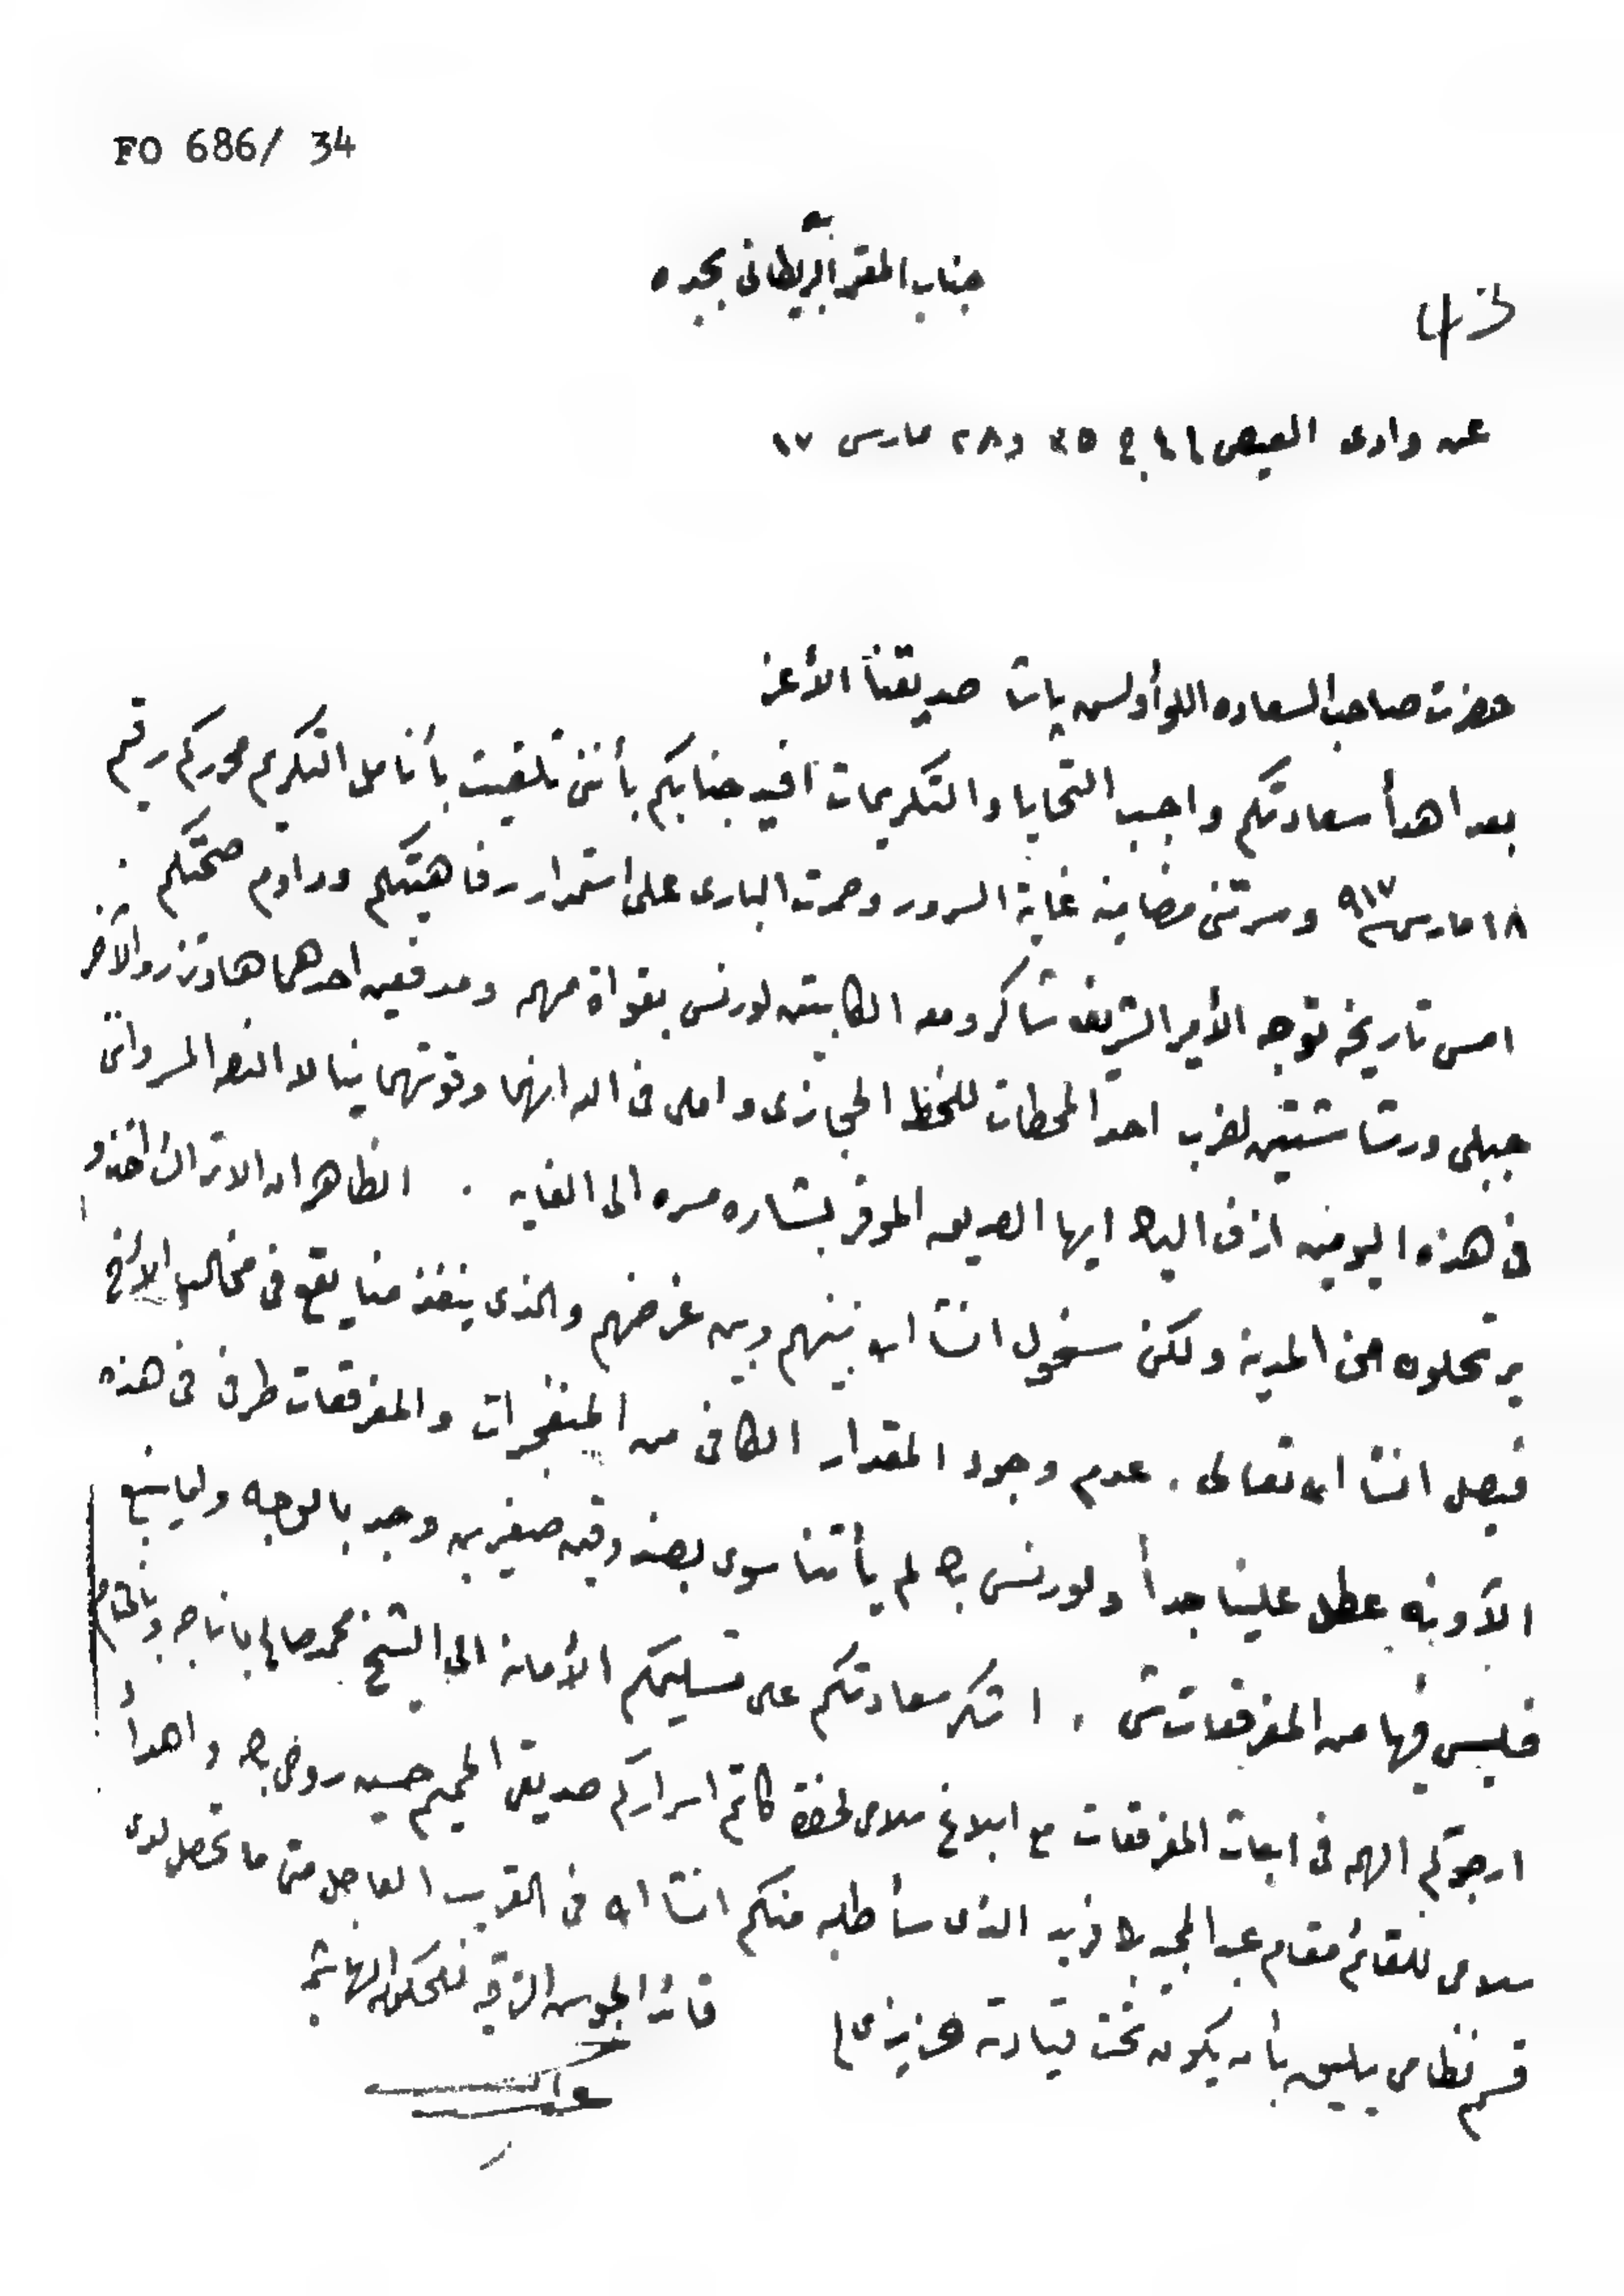 FO 686/ 34
جناب المعتمد البريطاني بجده
43
عن وادى العيص ج ٣٥ و ٢٨ مارس ١٧
حضرت صاحب السعاده اللوأ ولسن پاشا صديقنا الأعز
بعد اهدأ سعادتكم واجب التحايا والتكريمات افيد جنابكم بأننى تلقيت بأنامل التكريم محرركم رقيم
١٨ مارس ٩١٧ وسرتنى مضامينه غاية السرور وحمدت البارى على استمرار رفاهيتكم ودوام صحتكم .
امس تاريخه توجه الأمير الشريف شاكر ومعه الكابتن لورنس بقواة مهمه ومدفعين احدهما هاوتزر والآخر
جبلى ورشاشتين لضرب احد المحطات للخط الحجازى واملى فى الله انهما وقوتهما ينالا النصر
فى هذه اليومين ازف اليكم ايها الصديق الموقر بشاره مسره الى الغايه . الظاهر ان الاتراك اخذو
يرتحلون من المدينة ولكن سنحول انشا الله بينهم وبين غرضهم والذى ينفذ منا يقع فى مخالب الأخ
فيصل انشا الله تعالى . عدم وجود المقدار الكافى من المنفجرات والمفرقعات طرفى فى هذه
الآونه عطل علينا جداً ولورنس بك لم يأتنا سوى بصندوقين صغيرين وجد بالوجه ولما ينبع
فليس فيها من المفرقعات شى . اشكر سعادتكم على تسليمكم الأمانة الى الشيخ محمد صالح باناجه وبالختام
ارجوكم الهمه فى ابعاث المفرقعات مع ابلاغ سلامى لحضرة كاتم اسراركم صديقى الحميم حسين روحى بك واهدأ
سلامى للقائمقام عبد المجيد بك فريد الذى سأطلبه منكم انشا الله فى القريب العاجل متى ما تحصل لدى
قسم نظامى يليق بأن يكون تحت قيادته عزيزى
قائد الجيوش الشرقيه للحكومه الهاشميه
عبدالله